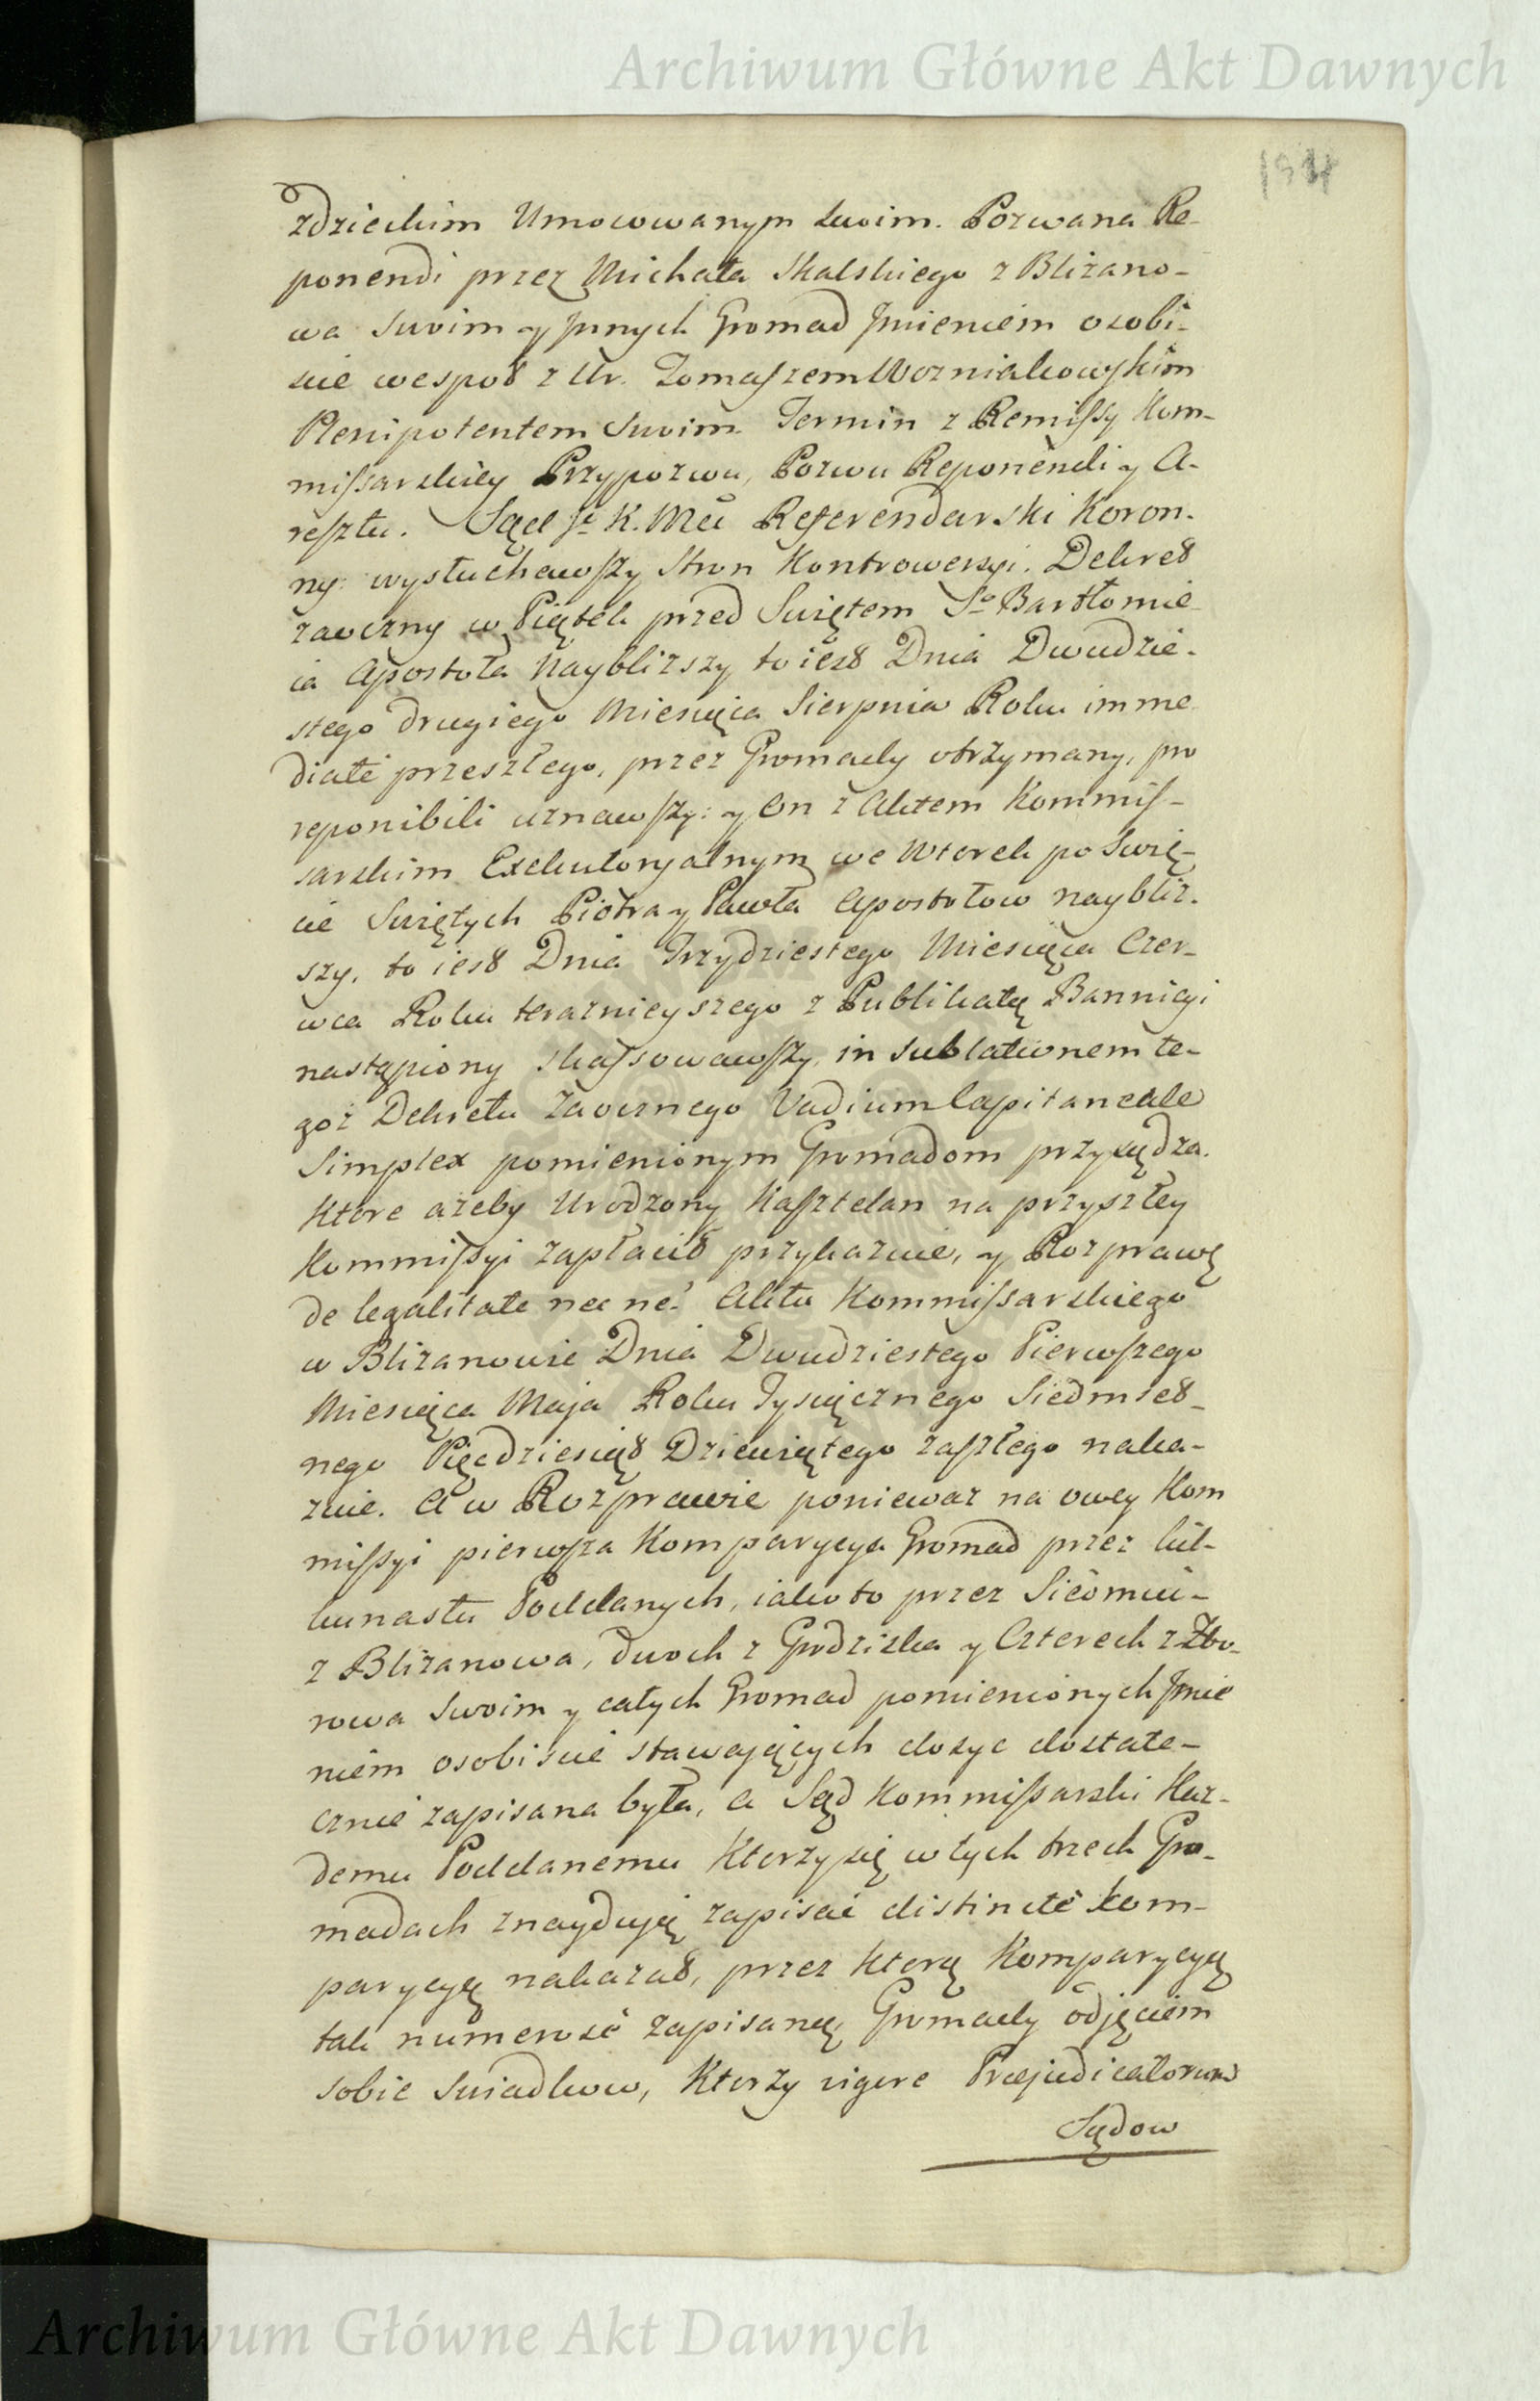 Archiwum Główne Akt Dawnych
zdzieckim Umocowanym swoim. Pozwana Re-
ponendi przez Michała Skalskiego z Blizano-
wa swoim y Innych Gromad Imieniem osobi-
scie wespoł z Ur. Tomaszem Wozniakowskim
Plenipotentem Swoim. Termin z Remissy Kom-
missarskiey Przypozwu, Pozwu Reponendi y A-
resztu. Sąd Jo K. Mci Referendarski Koron-
ny: wysłuchawszy Stron Kontrowersyi. Dekret
zaoczny w Piątek przed Swiętem So Bartłomie-
ia Apostoła Naybliszszy to iest Dnia Dwudzie-
stego drugiego Miesiąca Sierpnia Roku imme
diaté przeszłego, przez Gromady otrzymany, pro
reponibili uznawszy: y On z Aktem Kommis-
sarskim Exekutoryalnym we Wtorek po Swię-
cie Swiętych Piotra y Pawła Apostołow naybliz-
szy, to iest Dnia Trzydziestego Miesiąca Czer-
wca Roku teraznieyszego z Publikatą Bannicyi
nastąpiony skassowawszy, in sublationem te-
goz Dekretu Zaocznego Vadium Capitaneale
Simplex pomienionym Gromadom przysądza.
Ktore azeby Urodzony Kasztelan na przyszłey
Kommissyi zapłacił przykazuie, y Rozprawę
de legalitate nec ne? Aktu Kommissarskiego
w Blizanowie Dnia Dwudziestego Pierwszego
Miesiąca Maja Roku Tysiącznego Siedmset-
nego Pięcdziesiąt Dziewiątego zaszłego naka-
zuie. A w Rozprawie poniewaz na owey Kom
missyi pierwsza Komparycya Gromad przez kil-
kunastu Poddanych, iako to przez Siedmiu-
z Blizanowa, dwoch z Grodziska y Czterech z Zbo-
rowa swoim y całych Gromad pomienionych Imie
niem osobiscie stawaiących dosyc dostate-
cznie zapisana była, a Sąd Kommissarski Kaz-
demu Poddanemu Ktorzy się w tych trzech Gro-
madach znaydują zapisać distincté kom-
parycyą nakazał, przez ktorą Komparycyą
tak numerosé zapisaną, Gromady odjęciem
sobie swiadkow, Ktorzy vigore Præjudicatorum
Sądow
Archiwum Główne Akt Dawnych